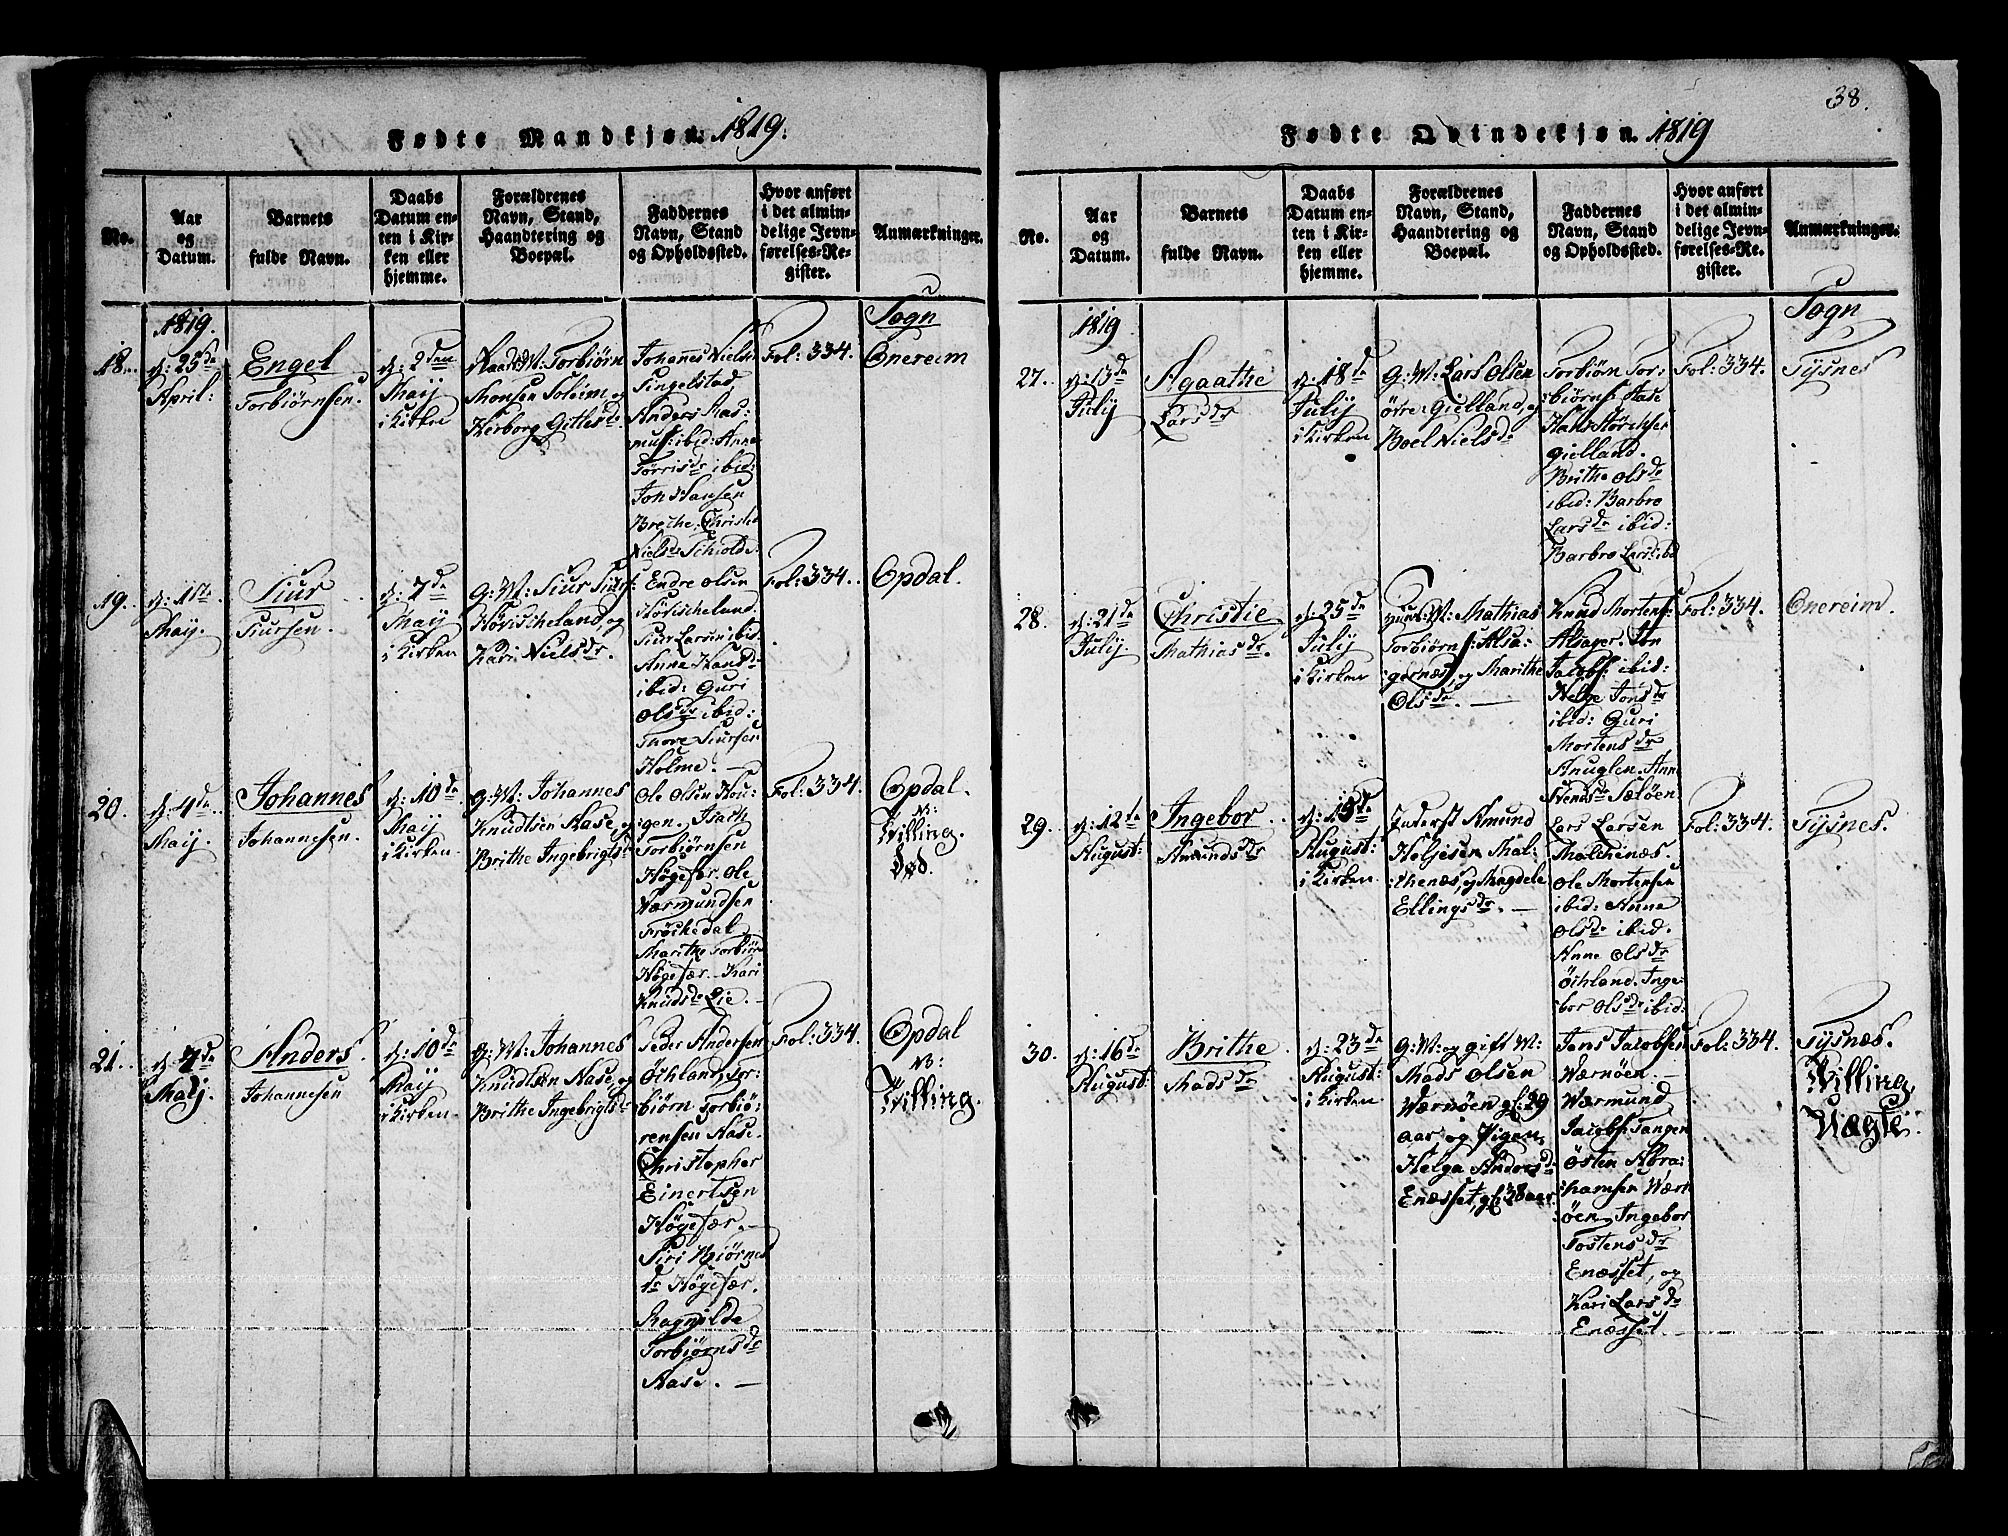 38.
Fødte Mandkjøn. 1819.
No.
Aar
og
Datum.
Barnets
fulde Navn.
Daabs
Datum en-
ten i Kir-
ken eller
hjemme.
Forældrenes
Navn, Stand,
Haandtering og
Boepæl.
Faddernes
Navn, Stand
og Opholdssted.
Hvor anført
i det almin-
delige Jevn-
førelses-Re-
gister.
Anmærkninger.
1819.
Sogn
18.
d: 25de
April.
Engel
Torbiørnsen.
d: 2den
Maij
i Kirken
Torbiørn
Monsen Soleim, og
Herborg Gitlesdr.
Johannes Nielsen
Singelstad,
Anders Ras-
mus: ibid: Anne
Tørrisdr ibid:
Jon Hansen
Brethe. Christi
Nielsdr Schiolde.
Fol: 334.
Onereim
19.
d: 1ste
Maij.
Siur
Siursen.
d: 7de
Maij
i Kirken
G: M: Siur Siurs:
Høvischeland, og
Kari Nielsdr.
Endre Olsen
Høvischeland.
Siur Larsen ibid.
Anne Hansd:
ibid: Guri
Olsdr ibid:
Thore Siursen
Holme. —
Fol: 334.
Opdal.
20.
d: 4de
Maij.
Johannes
Johannesen.
d: 10de
Maij
i Kirken.
G: M: Johannes
Knudtsen Aase, og
Brithe Ingebrigtsd:
Ole Olsen Hou-
gen. Isach
Torbiørnsen
Høgefær. Ole
Værmundsen
Frøchedal
Marithe Torbiørn
Høgefær. Kari
Knudsdr Lie. —
Fol: 334.
Opdal.
N:
Tvilling.
Død.
21.
d: 4de
Maij.
Anders.
Johannesen
d: 10de
Maij
i Kirken.
G: M: Johannes
Knudtsen Aase, og
Brithe Ingebrigtsd:
Peder Andersen
Øchland, Tor-
biørn Torbiø:
rensen Aase.
Christopher
Einertsen
Høgefær. —
Siri Biørnes
dr Høgefær.
Ragnilde
Torbiørnsdr
Aase. —
Fol: 334.
Opdal
N:
Tvilling.
Fødte Qvindekjøn. 1819
No.
Aar
og
Datum.
Barnets
fulde Navn.
Daabs
Datum en-
ten i Kir-
ken eller
hjemme.
Forældrenes
Navn, Stand,
Haandtering og
Boepæl.
Faddernes
Navn, Stand
og Opholdssted.
Hvor anført
i det almin-
delige Jevn-
førelses-Re-
gister.
Anmærkninger.
1819
Sogn
27.
d: 13de
Julij
Agaathe
Larsdr
d: 18de
Julij
i Kirken
G: M: Lars Olsen
øvre: Gielland, og
Boel Nielsdr
Torbiørn Tor-
:biørns: Aase
Hans
Gielland.
Brithe Olsdr
ibid: Barbro
Larsdr ibid:
Barbro Lars: ibid
Fol: 334.
Tysnes
28.
d: 21de
Julij.
Christie
Mathiasdr.
d: 25de
Julij
i Kirken
M: Mathias
Torbiørns: Alsa-
gernæs, og Marithe
Olsdr. —
Knud Mortens:
Alsager. Jon
Jacobs: ibid:
Helge Jonsdr
ibid: Guri
Mortensdr
Anuglen. Anne
Svendsdr Sæløen
Fol: 334.
Onereim.
29.
d: 12te
August:
Ingebor
Amundsdr
d: 15de
August:
i Kirken.
Inderst Amund
Heljesen Mal-
:chenæs, og Magdele
Ellingsdr. —
Lars Larsen
Malchenæs.
Ole Mortensen
ibid: Anne
Olsdr ibid.
Anne Olsdr
Øchland. Inge-
bor Olsdr ibid:
Fol: 334.
Tysnes.
30.
d: 16de
August:
Brithe
Madsdr
d: 23de
August:
i Kirken
G: M: og gift M:
Mads Olsen
Wærnøen gl: 29
aar og Pigen
Helga Andersdr
Enæsset, gl: 38 aar.
Jens Jacobsen
Wærnøen. —
Wærmund
Jacobs: Tangen
Østen Abra:
:hamsen Wærn
:øen, Ingebor
Tostensdr
Enæsset, og
Kari Larsdr
Enæsset. —
Fol: 334.
Tysnæs.
Tvilling
Uægte.